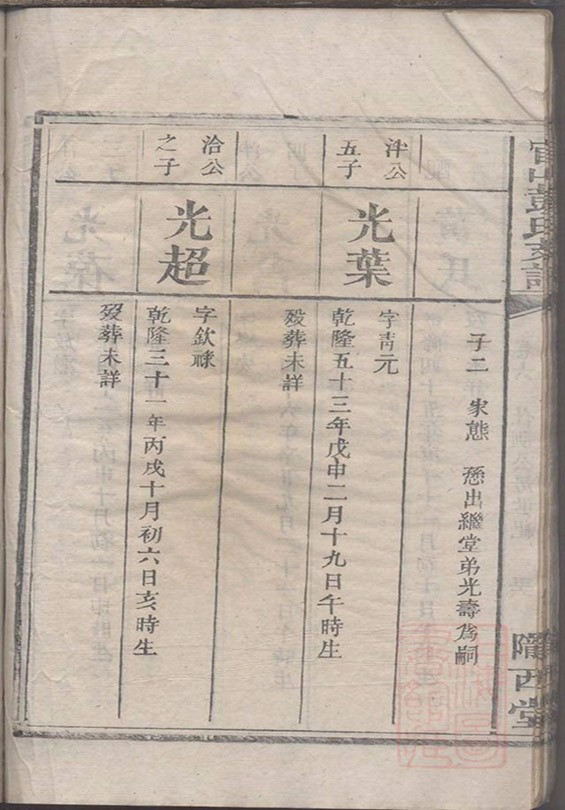 子二 家態 𢙐出繼堂弟光壽爲嗣
泮公
五子
光葉
字青元
乾隆五十三年戊申二月十九日午時生
歿葬未詳
洽公
之子
光超
字欽祿
乾隆三十一年丙戌十月初六日亥時生
歿葬未詳
彭氏支譜
隴西堂